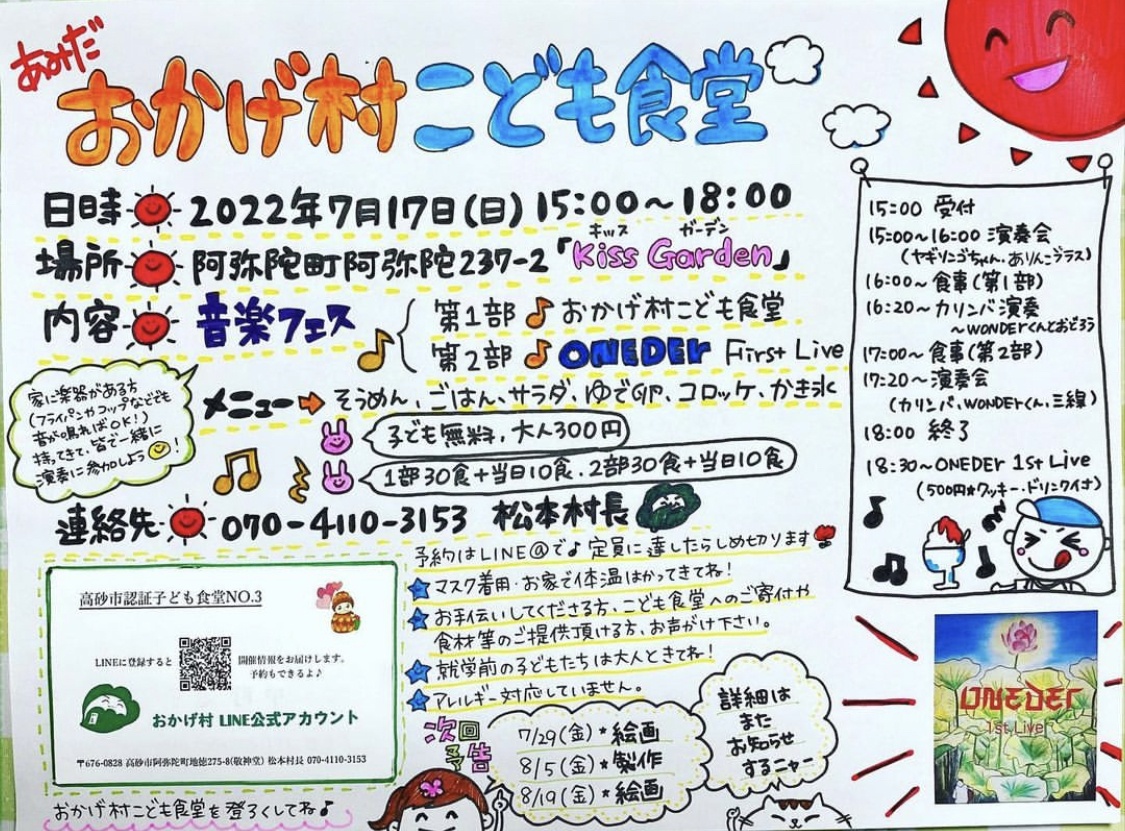 あみだ
おかげ村こども食堂
日時 2022年7月17日(日) 15:00～18:00
キッス ガーデン
場所 阿弥陀町阿弥陀237-2「Kiss Garden」
内容 音楽フェス
第1部 ♪ おかげ村こども食堂
第2部 ♪ ONEDER First Live
家に楽器がある方
(フライパンやコップなどでも
音が鳴ればOK!)
持ってきて、皆で一緒に
演奏に参加しよう!
メニュー → そうめん、ごはん、サラダ、ゆで卵、コロッケ、かき氷
子ども無料、大人300円
1部30食+当日10食、2部30食+当日10食
連絡先 070-4110-3153 松本村長
予約はLINE@で♪定員に達したらしめ切ります
マスク着用・お家で体温はかってきてね!
お手伝いしてくださる方、こども食堂へのご寄付や
食材等のご提供頂ける方、お声がけ下さい。
就学前の子どもたちは大人ときてね!
アレルギー対応していません。
高砂市認証子ども食堂NO.3
LINEに登録すると
開催情報をお届けします。
予約もできるよ♪
おかげ村 LINE公式アカウント
〒676-0828 高砂市阿弥陀町地徳275-8(敬神堂) 松本村長 070-4110-3153
おかげ村こども食堂を登ろくしてね♪
次回
予告
7/29(金)*絵画
8/5(金)*製作
8/19(金)*絵画
詳細は
また
お知らせ
するニャー
15:00 受付
15:00～16:00 演奏会
(ヤギリンゴちゃん、ありんこブラス)
16:00～食事(第1部)
16:20～カリンバ演奏
～WONDERくんとおどろう
17:00～食事(第2部)
17:20～演奏会
(カリンバ、WONDERくん、三線)
18:00 終了
18:30～ONEDER 1st Live
(500円*クッキー・ドリンク付)
ONEDER
1st Live